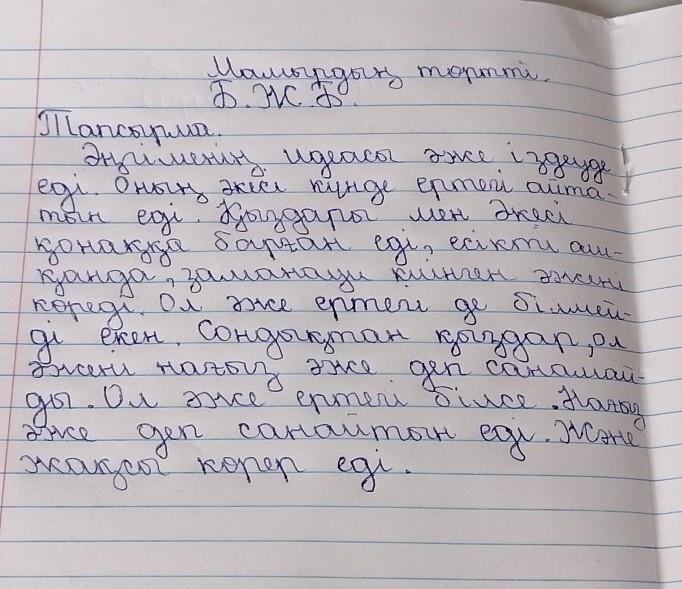 Мамырдың төртті.
Б.Ж.Б.
Тапсырма.
Әңгіменің идеасы әже іздеуде
еді. Оның әкесі күнде ертегі айта-
тын еді. Қыздары мен әкесі
қонаққа барған еді, есікті аш-
қанда, заманауи киінген әжені
көреді. Ол әже ертегі де білмей-
ді екен. Сондықтан қыздар, ол
әжені нағыз әже деп санамай-
ды. Ол әже ертегі білсе. Нағыз
әже деп санайтын еді. Және
жақсы көрер еді.